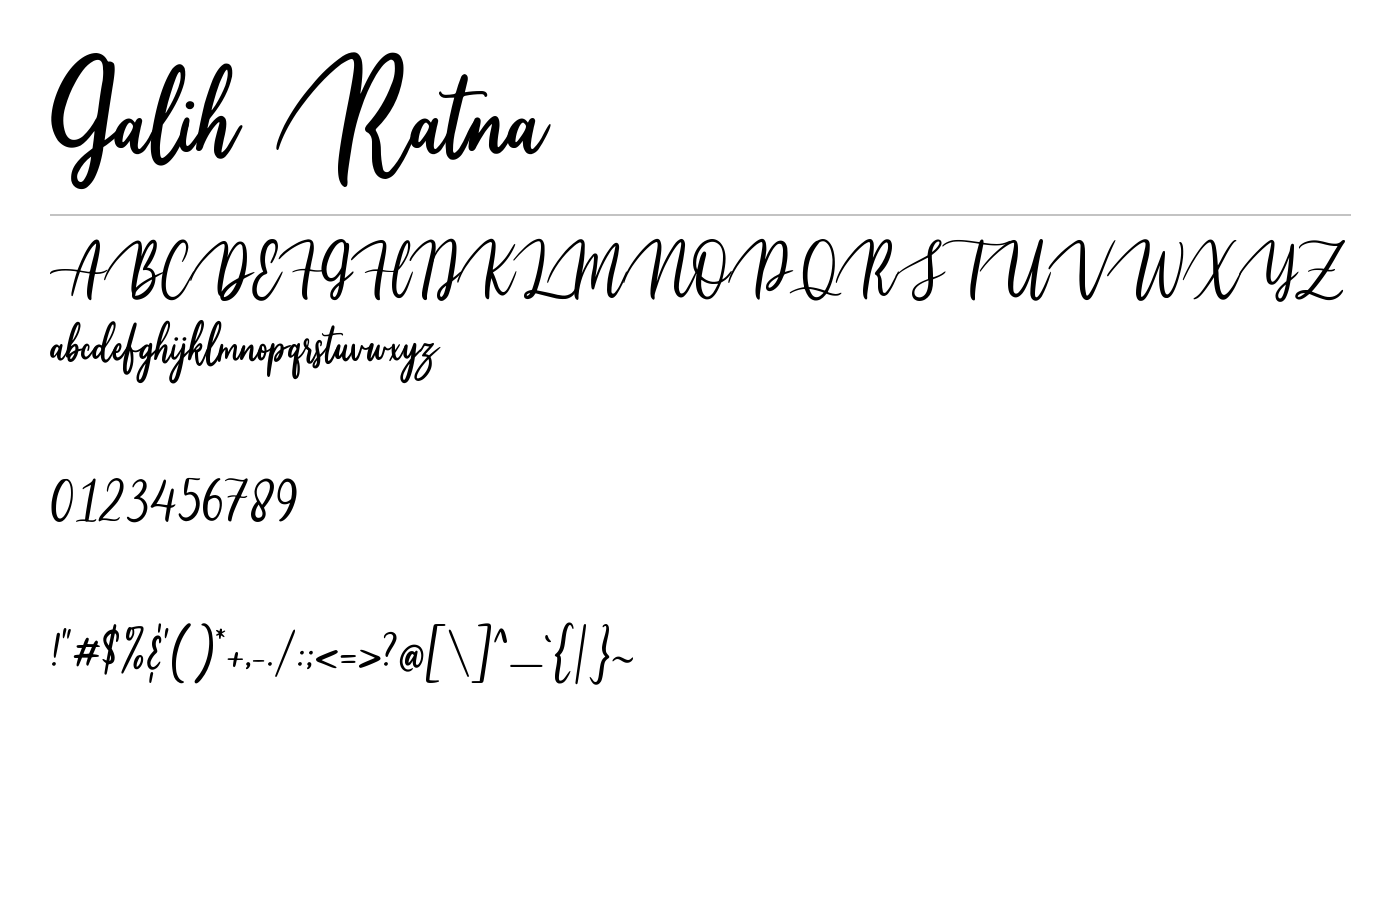 Galih Ratna
ABCDEFGHIJKLMNOPQRSTUVWXYZ
abcdefghijklmnopqrstuvwxyz
0123456789
!"#$%&'()*+,-./:;<=>?@[\]^_`{|}~